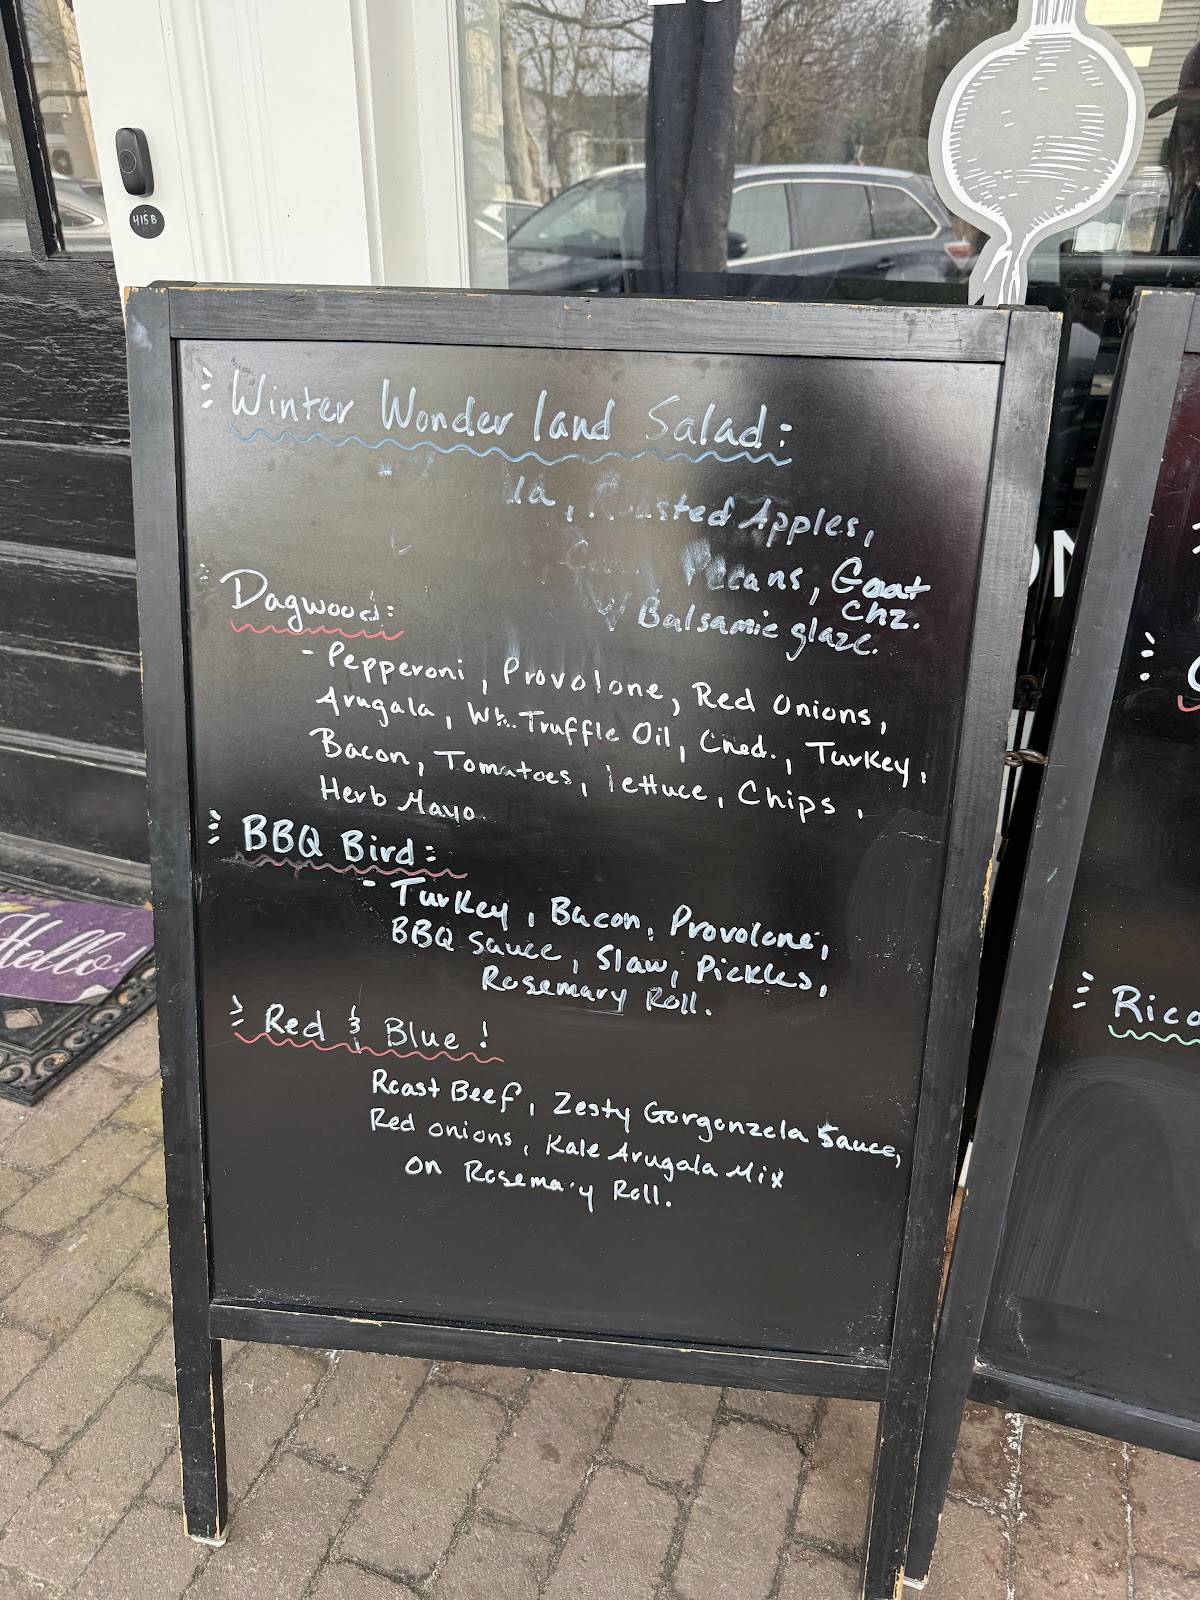 415B
Winter Wonder land Salad:
Roasted Apples,
Pecans, Goat
chz.
w/ Balsamic glaze.
Dagwood:
- Pepperoni, Provolone, Red Onions,
Arugala, Wh. Truffle Oil, Ched., Turkey,
Bacon, Tomatoes, lettuce, Chips,
Herb Mayo
BBQ Bird:
- Turkey, Bacon, Provolone,
BBQ Sauce, Slaw, Pickles,
Rosemary Roll.
Red & Blue!
Roast Beef, Zesty Gorgonzola Sauce,
Red onions, Kale Arugala Mix
on Rosemary Roll.
Hello!